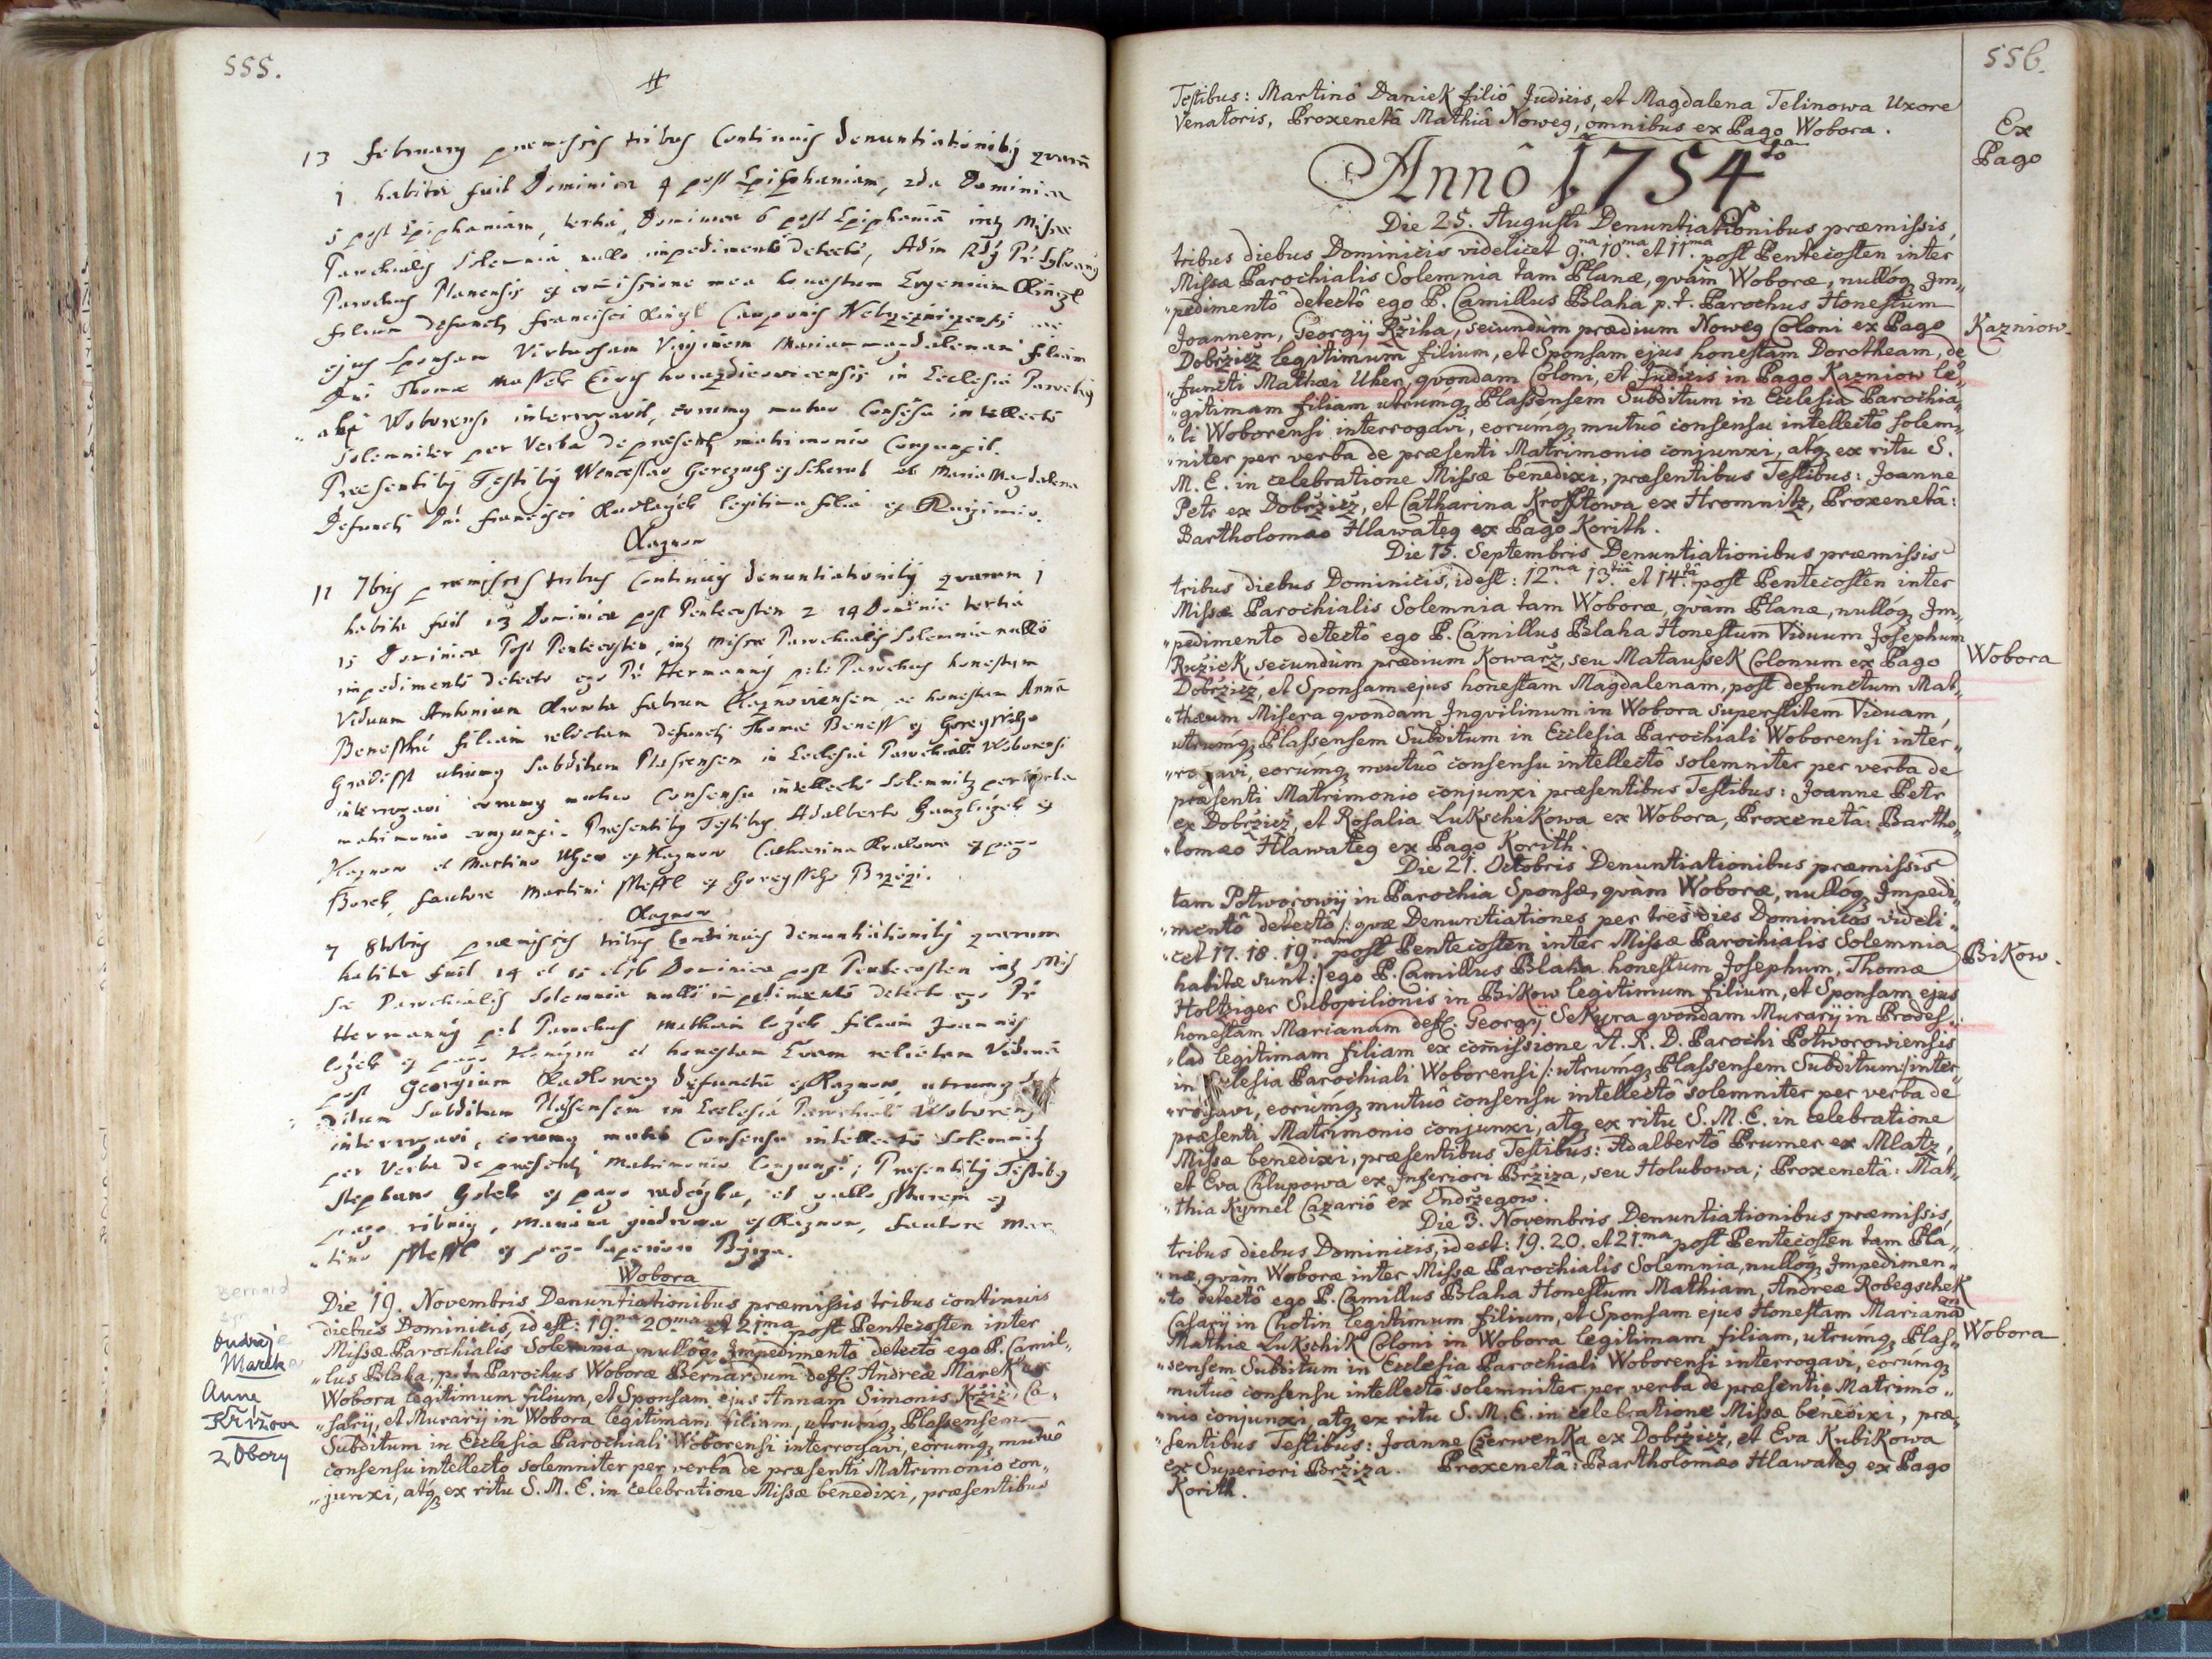 555.
13 february praemissis tribus Continuis denuntiationibus quarum
1 habita fuit Dominica 4 post Epiphaniam, 2da Dominica
5 post Epiphaniam, tertia Dominica 6 post Epiphaniam inter Missae
Parochialis Solemnia nullo impedimento detecto,
Parochus Planensis ex comissione mea honestum
filium defuncti francisci
ejus Sponsam Virtuosam Virginem Mariam magdalenam filiam
Dni Thomae in Ecclesia Parochi
ali Woborensi interrogavit, eorumq mutuo Consensu intellecto
Solemniter per Verba de praesenti matrimonio Conjunxit.
Praesentibus Testibus Wenceslao et Maria Magdalena
defuncti Dni francisci legitima filia ex
Kaznow
11 7bris praemissis tribus Continuis denuntiationibus quarum 1
habita fuit 13 Dominica post Pentecosten 2 14 Dominica tertia
15 Dominica Post Pentecosten, inter Missae Parochialis Solemnia nullo
impedimento detecto ego Pr Hermannus p:t: Parochus honestum
Viduum Antonium fabrum Kaznoviensem, ac honestam Annam
filiam relictam defuncti Thomae Beness ex
utrumq Subditum Plassensem in Ecclesia Parochiali Woborensi
interrogavi eorumq mutuo Consensu intellecto Solemniter per Verba
matrimonio conjunxi. Praesentibus Testibus Adalberto ex
Kaznow et Martino Uher ex Kaznow Catharina Kralowa ex pago
fautore Martini ex
Kaznow
7 8bris praemissis tribus Continuis denuntiationibus quarum
habita fuit 14 et 15 et 16 Dominica post Pentecosten inter Mis
sae Parochialis Solemnia nullo impedimento detecto ego Pr
Hermannus p:t: Parochus Mathiam filium Joannis
ex pago et honestam Evam relictam Viduam
post Georgium defunctum ex Kaznow, utrumq
Subditum Plassensem in Ecclesia Parochiali Woborensi
interrogavi, eorumq mutuo Consensu intellecto Solemniter
per Verba de praesenti Matrimonio Conjunxi; Praesentibus Testibus
Stephano ex pago et gallo ex
pago Mariana ex Kaznow, fautore Mar
tino ex pago Superiori
Wobora
Die 19. Novembris Denuntiationibus præmissis tribus continuis
diebus Dominicis, id est: 19.na 20.ma et 21.ma post Pentecosten inter
Missæ Parochialis Solemnia, nullóq Impedimento detectô ego P. Camil„
„lus Blaha, p. t. Parochus Woboræ Bernardum deff. Andreæ Marek ex
Wobora legitimum filium, et Sponsam ejus Annam Simonis Krziz, Ca„
„sarij, et Murarij in Wobora legitimam filiam, utrumq Plassensem
Subditum in Ecclesia Parochiali Woborensi interrogavi, eorúmq mutuô
consensu intellecto solemniter per verba de præsenti Matrimonio con„
„junxi, atq ex ritu S. M. E. in celebratione Missæ benedixi, præsentibus
Bernard
syn
Ondřeje
Marka
Anna
Křížova
z Obory
556.
Testibus: Martinô Daniek filiô Judicis, et Magdalena Telinowa Uxore
Venatoris, Proxenetâ Mathiâ Noweg, omnibus ex Pago Wobora.
Ex
Pago
Annô 1754to
Die 25. Augusti Denuntiationibus præmissis,
tribus diebus Dominicis videlicet 9.na 10.ma et 11.ma post Pentecosten inter
Missæ Parochialis Solemnia tam Planæ, qvàm Woboræ, nullóq Im„
„pedimentô detectô ego P. Camillus Blaha p. t. Parochus Honestum
Joannem, Georgij Rziha, secundùm prædium Noweg Coloni ex Pago
Kazniow.
Dobržicz legitimum filium, et Sponsam ejus honestam Dorotheam, de
„functi Mathæi Uher, qvondam Coloni, et Judicis in Pago Kazniow le„
„gitimam filiam utrúmq Plassensem Subditum in Ecclesia Parochia„
„li Woborensi interrogavi, eorúmq mutuô consensu intellectô solem„
„niter per verba de præsenti Matrimonio conjunxi, atq ex ritu S.
M. E. in celebratione Missæ benedixi, præsentibus Testibus: Joanne
Petr ex Dobržicz, et Catharina Kroftowa ex Hromnitz, Proxenetâ:
Bartholomæo Hlawateg ex Pago Korith.
Die 15. Septembris Denuntiationibus præmissis
tribus diebus Dominicis, idest: 12.ma 13.tiâ et 14.tâ post Pentecosten inter
Missæ Parochialis Solemnia tam Woboræ, qvàm Planæ, nullóq Im„
„pedimento detectô ego P. Camillus Blaha Honestum Viduum Josephum
Ružicžk, secundùm prædium Kowarž, seu Mataussek Colonum ex Pago
Wobora
Dobržicž, et Sponsam ejus honestam Magdalenam, post defunctum Mat„
„thæum Misera qvondam Inqvilinum in Wobora superstitem Viduam,
utrumq Plassensem Subditum in Ecclesia Parochiali Woborensi inter„
„rogavi, eorúmq mutuô consensu intellectô solemniter per verba de
præsenti Matrimonio conjunxi præsentibus Testibus: Joanne Petr
ex Dobržicž, et Rosalia Lukschikowa ex Wobora, Proxenetâ: Bartho„
„lomæo Hlawateg ex Pago Korith.
Die 21. Octobris Denuntiationibus præmissis
tam Potworowij in Parochia Sponsæ, qvàm Woboræ, nullóq Impedi„
„mentô detectô /: qvæ Denuntiationes per tres dies Dominicos videli„
„cet 17. 18. 19.nam post Pentecosten inter Missæ Parochialis Solemnia
habitæ sunt:/ ego P. Camillus Blaha honestum Josephum, Thomæ
Bikow.
Holtziger Subopilionis in Bikow legitimum filium, et Sponsam ejus
honestam Marianam deff. Georgij Sekyra qvondam Murarij in Prodes„
„lad legitimam filiam ex comissione A. R. D. Parochi Potworowiensis
in Ecclesia Parochiali Woborensi /: utrúmq Plassensem Subditum:/ inter„
„rogavi, eorúmq mutuô consensu intellectô solemniter per verba de
præsenti Matrimonio conjunxi, atq ex ritu S. M. E. in celebratione
Missæ benedixi, præsentibus Testibus: Adalbertô Prumer ex Mlatz,
et Eva Chlupowa ex Inferiori Bržiza, seu Holubowa; Proxenetâ: Mat„
„thia Kymel Cazariô ex Ondržegow.
Die 3. Novembris Denuntiationibus præmissis,
tribus diebus Dominicis, idest: 19. 20. et 21.ma post Pentecosten tam Pla„
„næ, qvàm Woboræ inter Missæ Parochialis Solemnia, nullóq Impedimen„
„to detectô ego P. Camillus Blaha Honestum Mathiam, Andreæ Robegschek
Casarij in Chotin legitimum filium, et Sponsam ejus Honestam Marianam
Mathiæ Lukschik Coloni in Wobora legitimam filiam, utrúmq Plas„
Wobora
„sensem Subditum in Ecclesia Parochiali Woborensi interrogavi, eorúmq
mutuô consensu intellectô solemniter per verba de præsenti Matrimo„
„nio conjunxi, atq ex ritu S. M. E. in celebratione Missæ benedixi, præ„
„sentibus Testibus: Joanne Czerwenka ex Dobržicž, et Eva Kubikowa
ex Superiori Bržiza. Proxenetâ: Bartholomæo Hlawateg ex Pago
Korith.